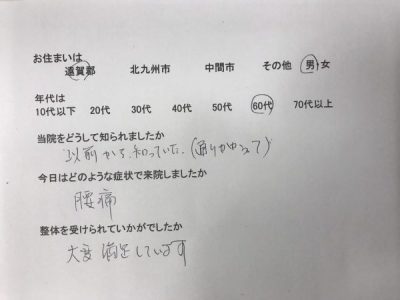 お住まいは
遠賀郡 北九州市 中間市 その他 男・女
年代は
10代以下 20代 30代 40代 50代 60代 70代以上
当院をどうして知られましたか
以前から知っていた。(通りがかって)
今日はどのような症状で来院しましたか
腰痛
整体を受けられていかがでしたか
大変満足しています